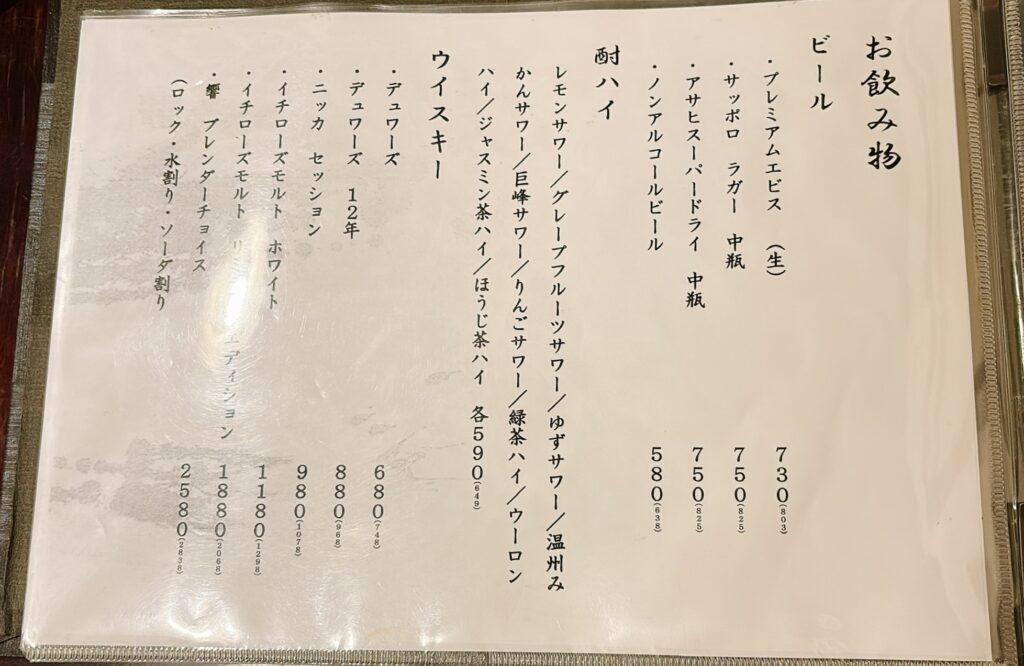 お飲み物
ビール
・プレミアムエビス （生） 730(803)
・サッポロ ラガー 中瓶 750(825)
・アサヒスーパードライ 中瓶 750(825)
・ノンアルコールビール 580(638)
酎ハイ
レモンサワー／グレープフルーツサワー／ゆずサワー／温州み
かんサワー／巨峰サワー／りんごサワー／緑茶ハイ／ウーロン
ハイ／ジャスミン茶ハイ／ほうじ茶ハイ 各590(649)
ウイスキー
・デュワーズ 680(748)
・デュワーズ 12年 880(968)
・ニッカ セッション 980(1078)
・イチローズモルト ホワイト 1180(1298)
・イチローズモルト エディション 1880(2068)
・響 ブレンダーチョイス 2580(2838)
（ロック・水割り・ソーダ割り